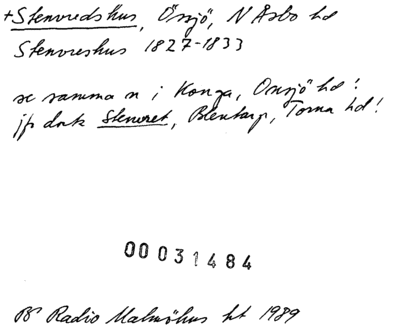 +Stenvredshus, Össjö, N Åsbo hd
Stenvreshus 1827-1833
se samma n i Konga, Onsjö hd!
jfr dock Stenvret, Blentarp, Torna hd!
00031484
BP Radio Malmöhus ht 1989